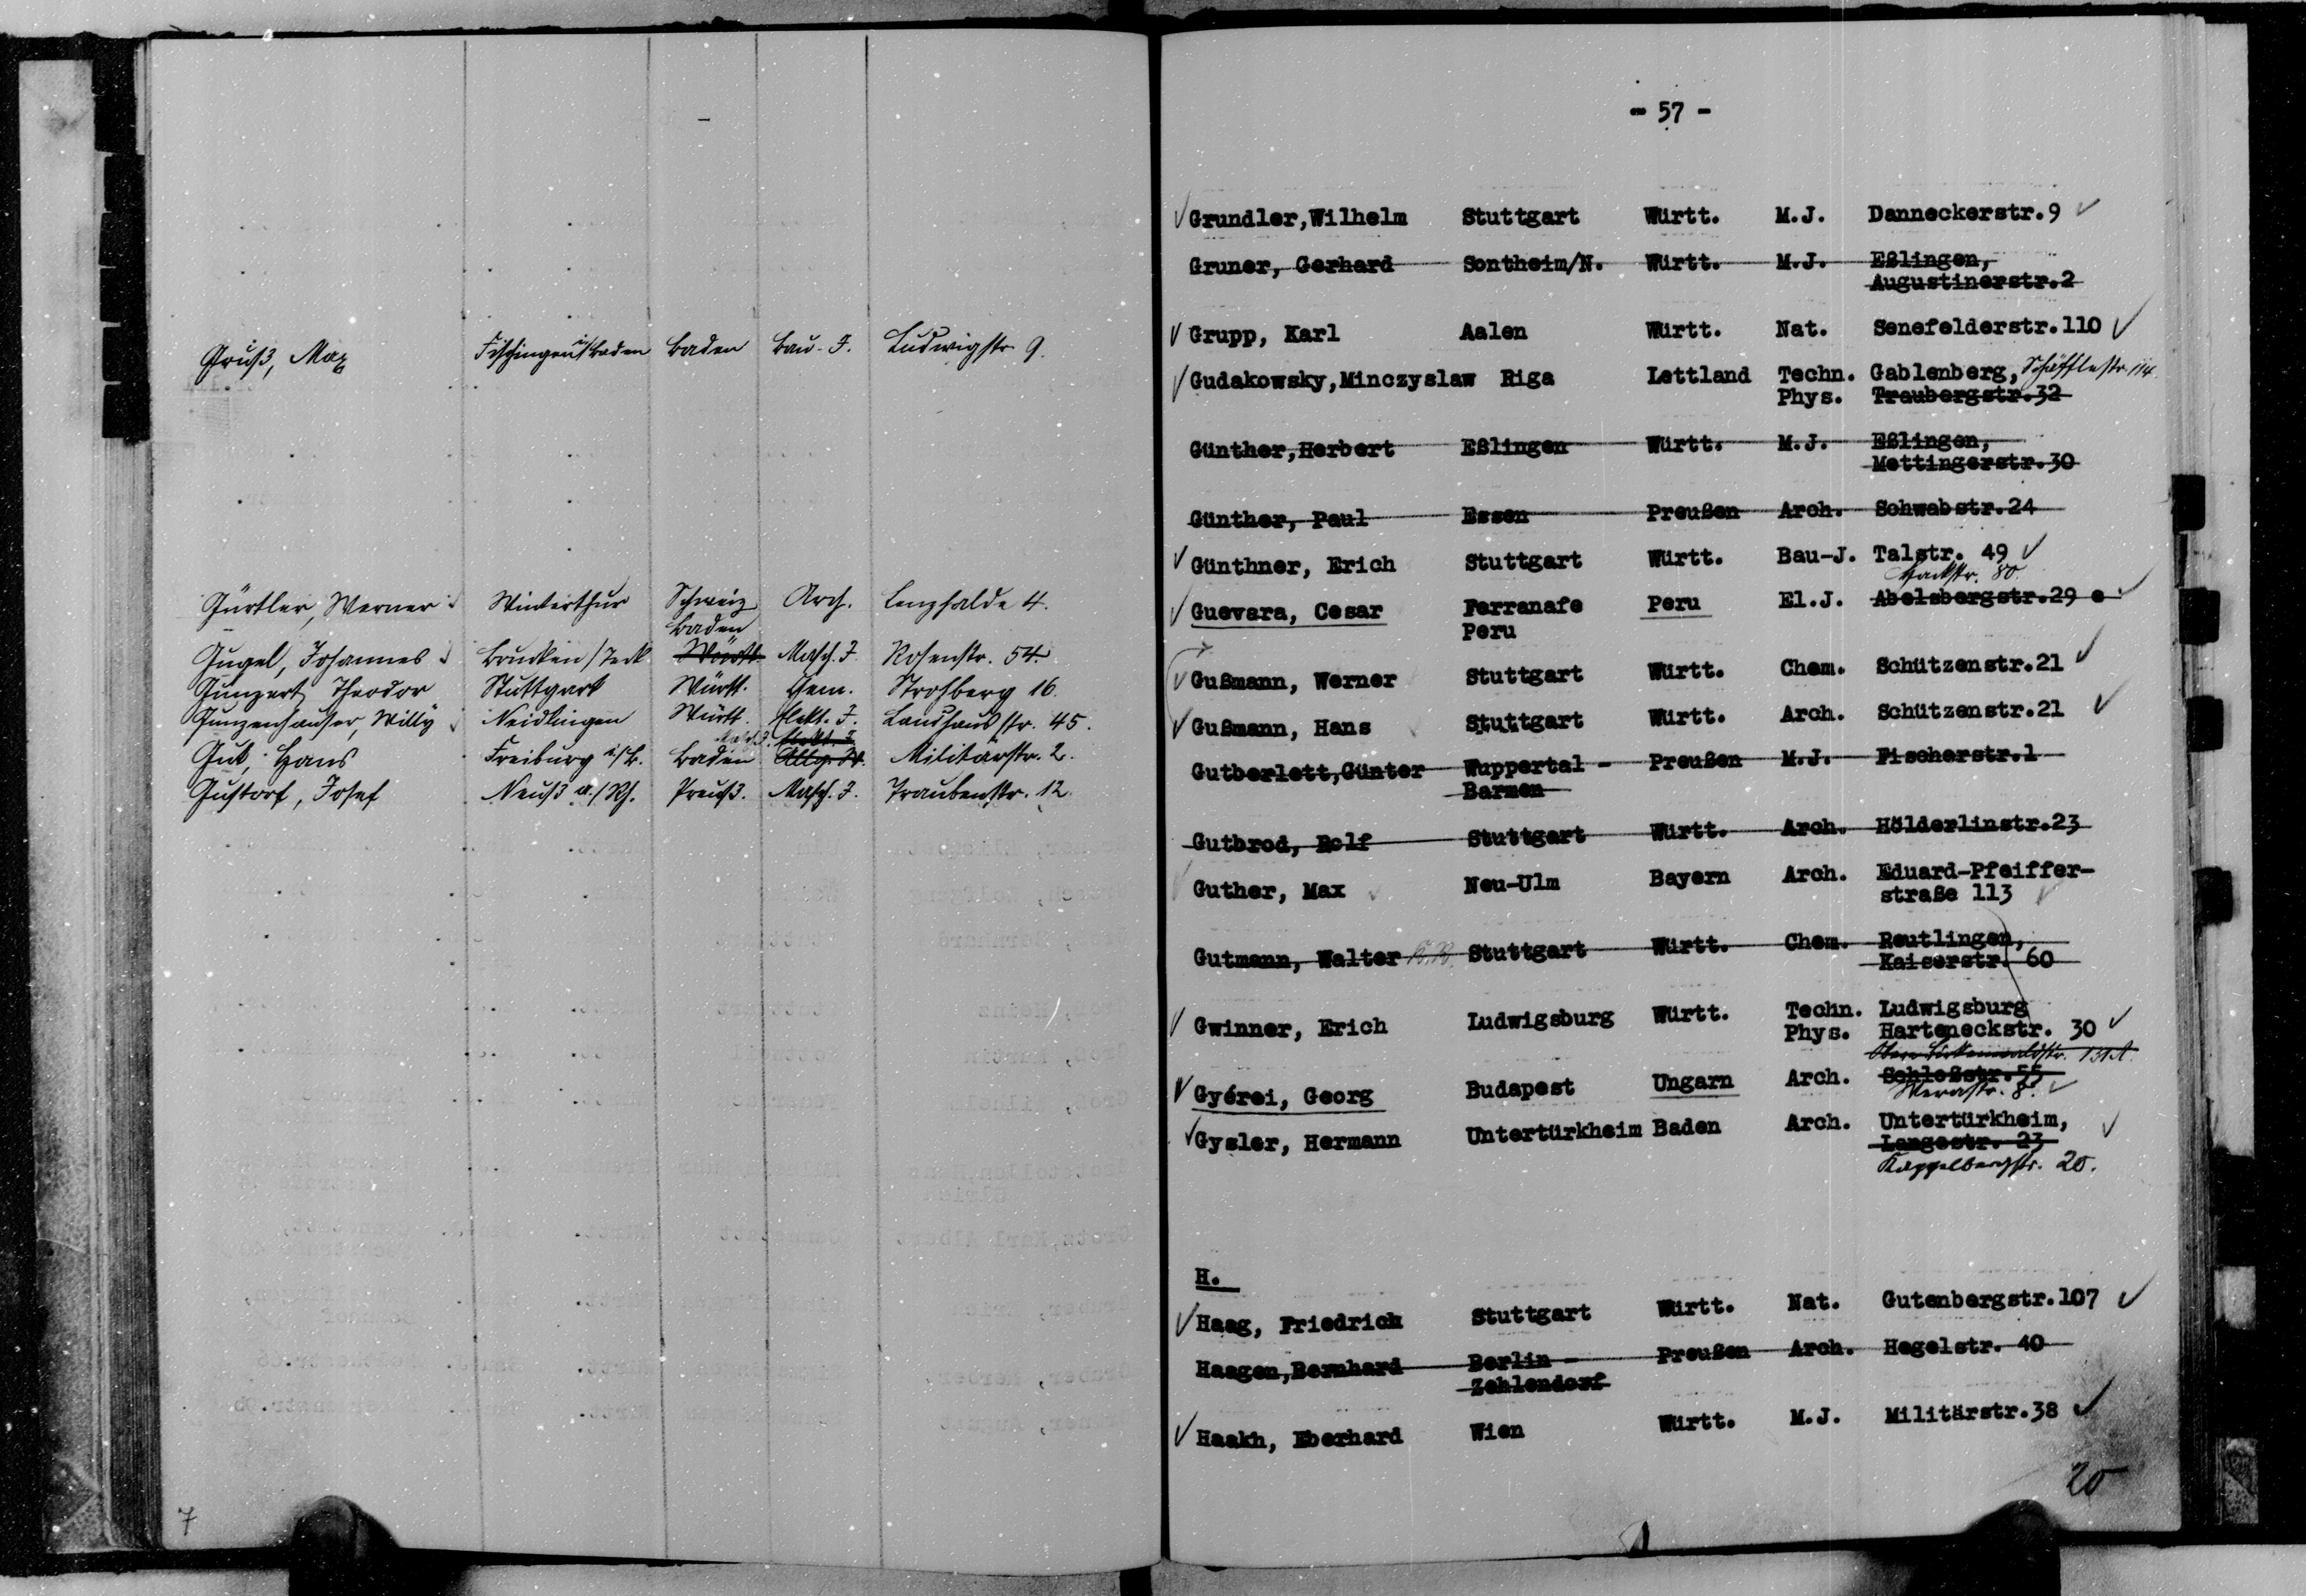 Gruß, Max Fischingen i/Baden Baden Bau-J. Ludwigstr. 9.
Gürtler, Werner Winterthur Schweiz Arch. Lenzhalde 4.
Baden
Gugel, Johannes Brucken/Teck Württ. Masch. J. Rosenstr. 54.
Gunzert Theodor Stuttgart Württ. Chem. Strohberg 16.
Gunzenhauser, Willy Neidlingen Württ. Elekt. J. Landhausstr. 45.
Masch. J. Elekt. J.
Gut, Hans Freiburg i/B. Baden Allg. W. Militärstr. 2.
Gustorf, Josef Neuß a./Rh. Preuß. Masch. J. Traubenstr. 12.
7
- 57 -
Grundler,Wilhelm Stuttgart Württ. M.J. Danneckerstr.9
Gruner, Gerhard Sontheim/N. Württ. M.J. Eßlingen,
Augustinerstr.2
Grupp, Karl Aalen Württ. Nat. Senefelderstr.110
Gudakowsky,Minczyslaw Riga Lettland Techn. Gablenberg, Schäfflestr. 114.
Phys. Traubergstr.32
Günther,Herbert Eßlingen Württ. M.J. Eßlingen,
Mettingerstr.30
Günther, Paul Essen Preußen Arch. Schwabstr.24
Günthner, Erich Stuttgart Württ. Bau-J. Talstr. 49
Hackstr. 80.
Guevara, Cesar Ferranafe Peru El.J. Abelsbergstr.29 e
Peru
Gußmann, Werner Stuttgart Württ. Chem. Schützenstr.21
Gußmann, Hans Stuttgart Württ. Arch. Schützenstr.21
Gutberlett,Günter Wuppertal - Preußen M.J. Fischerstr.1
Barmen
Gutbrod, Rolf Stuttgart Württ. Arch. Hölderlinstr.23
Guther, Max Neu-Ulm Bayern Arch. Eduard-Pfeiffer-
straße 113
Gutmann, Walter Stuttgart Württ. Chem. Reutlingen,
Kaiserstr. 60
Gwinner, Erich Ludwigsburg Württ. Techn. Ludwigsburg
Phys. Harteneckstr. 30
Obere Birkenwaldstr. 131A.
Gyérei, Georg Budapest Ungarn Arch. Schloßstr.55
Werastr. 8.
Gysler, Hermann Untertürkheim Baden Arch. Untertürkheim,
Langestr. 23
Kappelbergstr. 20.
H.
Haag, Friedrich Stuttgart Württ. Nat. Gutenbergstr.107
Haagen,Bernhard Berlin - Preußen Arch. Hegelstr. 40
Zehlendorf
Haakh, Eberhard Wien Württ. M.J. Militärstr.38
20